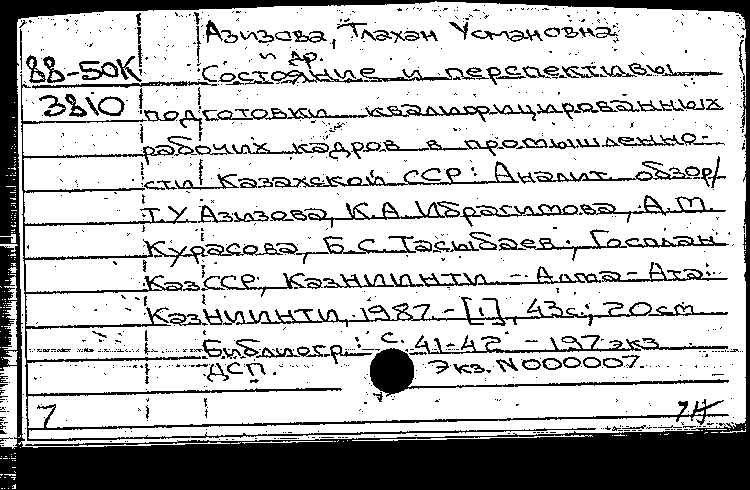 Азизова, Тлахан Усмановна
и др.
88-50К Состояние и перспективы
3810 подготовки квалифицированных
рабочих кадров в промышленно-
сти Казахской ССР: Аналит. обзор/
Т.У. Азизова, К.А. Ибрагимова, А.М.
Курасова, Б.С. Тасыбаев; Госплан
КазССР, КазНИИНТИ. - Алма-Ата:
КазНИИНТИ, 1987. - [1], 43с.; 20см
Библиогр.: с. 41-42. - 197 экз
ДСП. Экз. N000007.
7